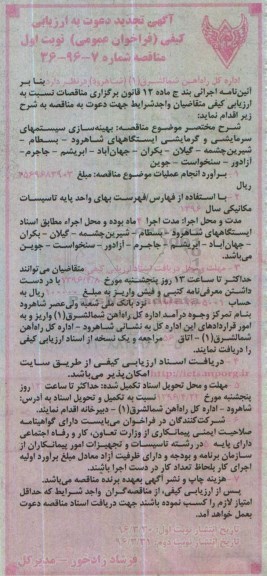 آگهی تجدید دعوت به ارزیابی
کیفی (فراخوان عمومی) نوبت اول
مناقصه شماره ۷-۹۶-۳۶
اداره کل راه‌آهن شمالشرق(۱) در نظر دارد بنا بر
آئین‌نامه اجرائی بند ج ماده ۱۲ قانون برگزاری مناقصات نسبت به
ارزیابی کیفی متقاضیان واجدشرایط جهت دعوت به مناقصه به شرح
زیر اقدام نماید:
شرح مختصر موضوع مناقصه: بهینه‌سازی سیستمهای
سرمایشی و گرمایشی ایستگاههای شاهرود - بسطام -
شیرین‌چشمه - گیلان - بکران - جهان‌آباد - ابریشم - جاجرم -
آزادور - سنخواست - جوین
۱- برآورد انجام عملیات موضوع مناقصه: مبلغ
ریال
۲- با استفاده از فهارس/فهرست بهای واحد پایه تاسیسات
مکانیکی سال
مدت و محل اجرا: مدت اجرا ماه بوده و محل اجراء مطابق اسناد
ایستگاههای شاهرود - بسطام - شیرین‌چشمه - گیلان - بکران
- جهان‌آباد - ابریشم - جاجرم - آزادور - سنخواست - جوین
می‌باشد.
متقاضیان می‌توانند
حداکثر تا ساعت ۱۳ روز پنجشنبه مورخ با در دست
داشتن معرفی‌نامه کتبی و فیش واریز به مبلغ ریال به
حساب نزد بانک ملی شعبه ولی عصر شاهرود
بنام تمرکز وجوه درآمد اداره کل راه‌آهن شمالشرق(۱) واریز و به
امور قراردادهای این اداره کل به نشانی شاهرود - اداره کل راه‌آهن
شمالشرق(۱) - اتاق مراجعه و یک نسخه از اسناد ارزیابی کیفی
را دریافت نمایند.
- دریافت اسناد ارزیابی کیفی از طریق سایت
امکان‌پذیر می‌باشد.
۵- مهلت و محل تحویل اسناد تکمیل شده: حداکثر تا ساعت روز
پنجشنبه مورخ نسبت به تکمیل و تحویل اسناد به آدرس:
شاهرود - اداره کل راه‌آهن شمالشرق(۱) - دبیرخانه اقدام نمایند.
شرکت‌کنندگان در فراخوان می‌بایست دارای گواهینامه
صلاحیت ایمنی پیمانکاری از وزارت تعاون، کار و رفاه اجتماعی
دارای پایه در رشته تاسیسات و تجهیزات امور پیمانکاران از
سازمان برنامه و بودجه و دارای ظرفیت آزاد معادل مبلغ برآورد اولیه
اجرای کار بلحاظ تعداد کار در دست اجرا باشند.
۷- هزینه چاپ و نشر آگهی بعهده برنده مناقصه می‌باشد.
پس از ارزیابی کیفی، از مناقصه‌گران واجد شرایط که حداقل
امتیاز لازم را کسب نموده باشند جهت دریافت اسناد مناقصه دعوت
بعمل خواهد آمد.
تاریخ انتشار نوبت اول:
تاریخ انتشار نوبت دوم:
فرشاد رادخون - مدیرکل